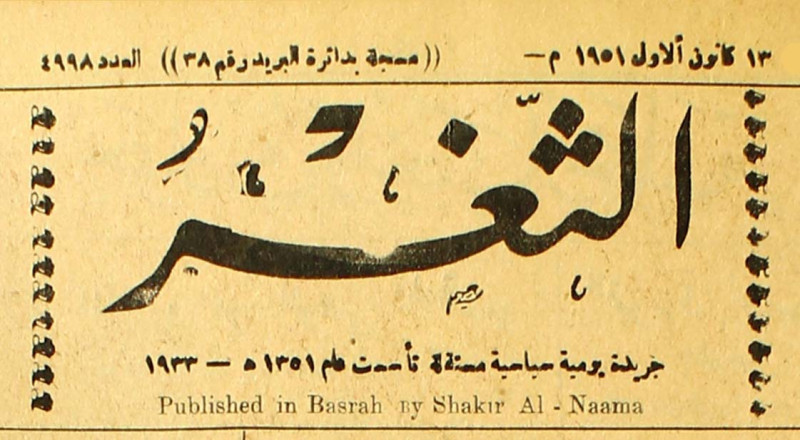 ١٣ كانون ألاول ١٩٥١ م — ((مسجلة بدائرة البريد رقم ٣٨)) العدد ٤٩٩٨
الثَّغْرُ
جريدة يومية سياسية مستقلة تأسست عام ١٣٥١ ه — ١٩٣٣
Published in Basrah By Shakir Al - Naama